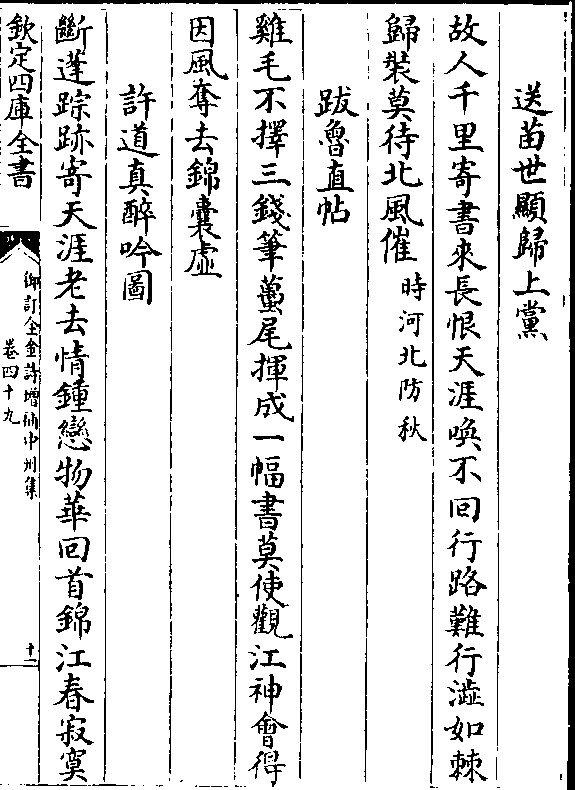 送苗世顯歸上黨
故人千里寄書來長恨天涯喚不回行路難行澁如棘
歸裝莫待北風催時河北防秋
跋魯直帖
雞毛不擇三錢筆蠆尾揮成一幅書莫使觀江神會得
因風奪去錦囊虛
許道真醉吟圖
斷蓬踪跡寄天涯老去情鍾戀物華回首錦江春寂寞
欽定四庫全書
御訂全金詩增補中州集
卷四十九
十二